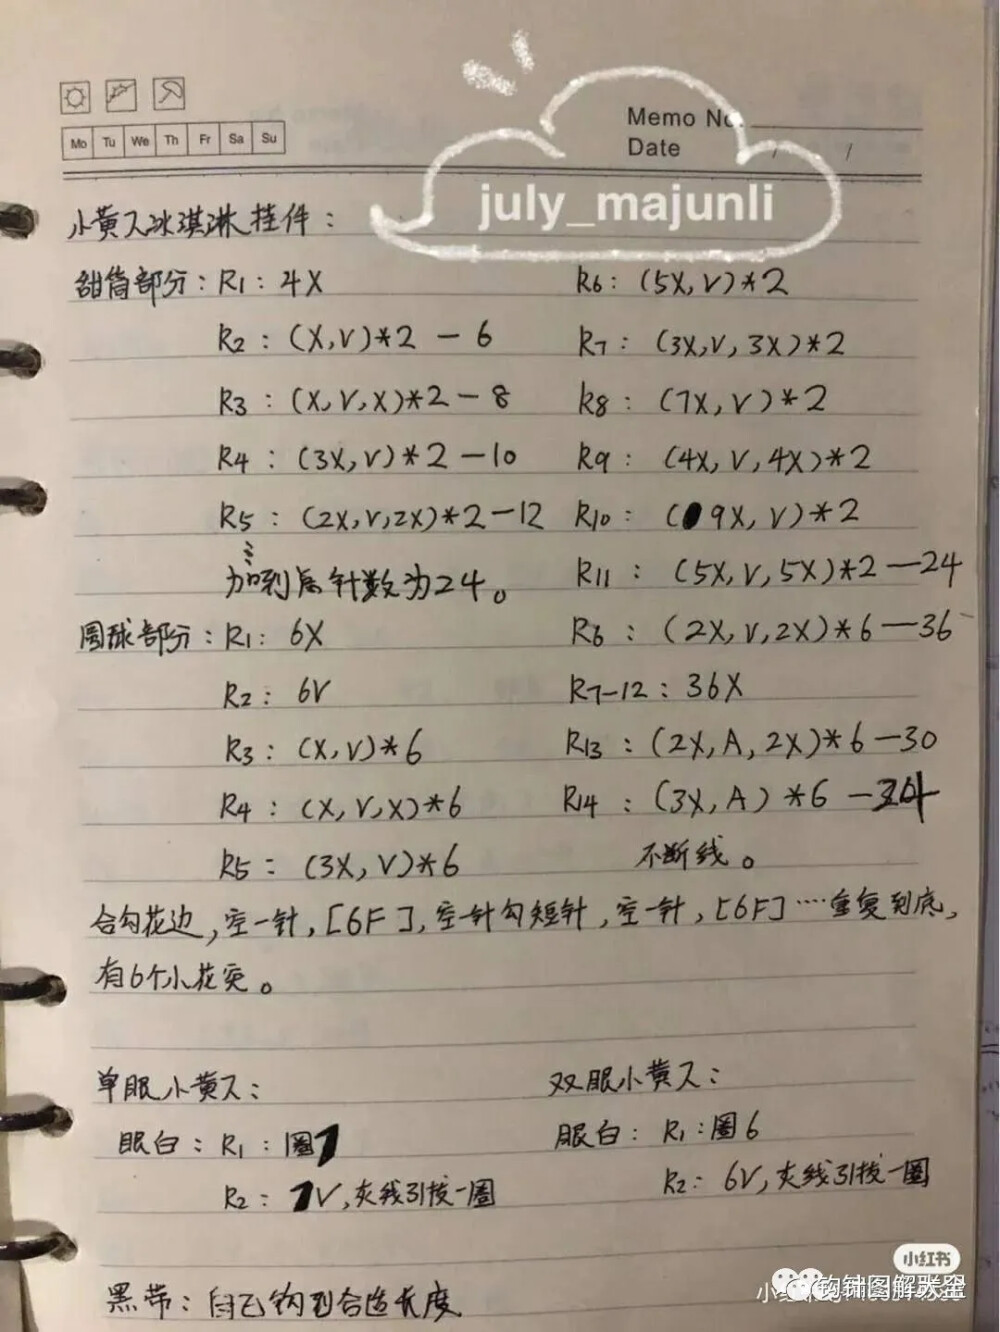 Memo No.
Mo Tu We Th Fr Sa Su
Date / /
july_majunli
小黄人冰淇淋挂件：
甜筒部分：R1：4X
R2：(X,V)*2 — 6
R3：(X,V,X)*2 — 8
R4：(3X,V)*2 — 10
R5：(2X,V,2X)*2 — 12
加到总针数为24。
R6：(5X,V)*2
R7：(3X,V,3X)*2
R8：(7X,V)*2
R9：(4X,V,4X)*2
R10：(9X,V)*2
R11：(5X,V,5X)*2 — 24
圆球部分：R1：6X
R2：6V
R3：(X,V)*6
R4：(X,V,X)*6
R5：(3X,V)*6
R6：(2X,V,2X)*6 — 36
R7-12：36X
R13：(2X,A,2X)*6 — 30
R14：(3X,A)*6 — 24
不断线。
合勾花边,空一针,[6F],空一针勾短针,空一针,[6F]····重复到底,
有6个小花突。
单眼小黄人：
眼白：R1：圈7
R2：7V,夹线引拔一圈
双眼小黄人：
眼白：R1：圈6
R2：6V,夹线引拔一圈
黑带：自己钩到合适长度
小红书
钩针图解大全